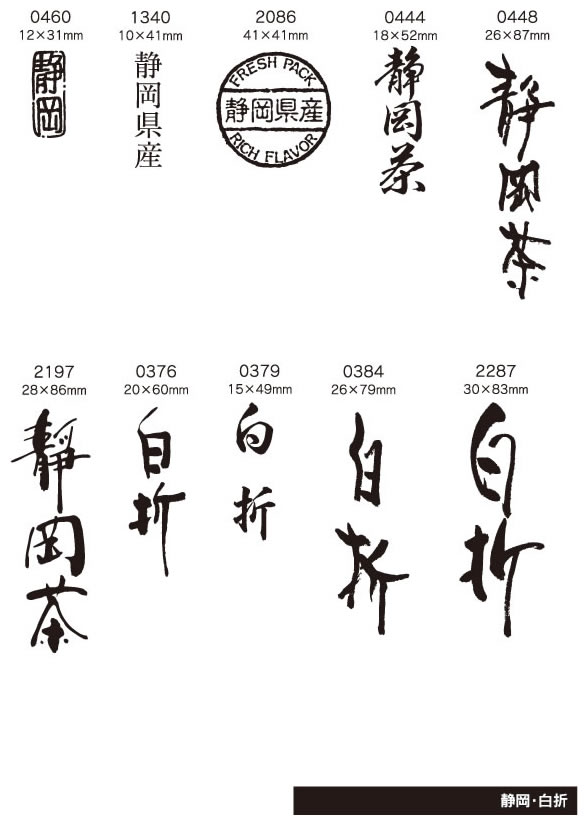 0460
12×31mm
静岡
1340
10×41mm
静岡県産
2086
41×41mm
FRESH PACK
静岡県産
RICH FLAVOR
0444
18×52mm
静岡茶
0448
26×87mm
静岡茶
2197
28×86mm
静岡茶
0376
20×60mm
白折
0379
15×49mm
白折
0384
26×79mm
白折
2287
30×83mm
白折
静岡・白折